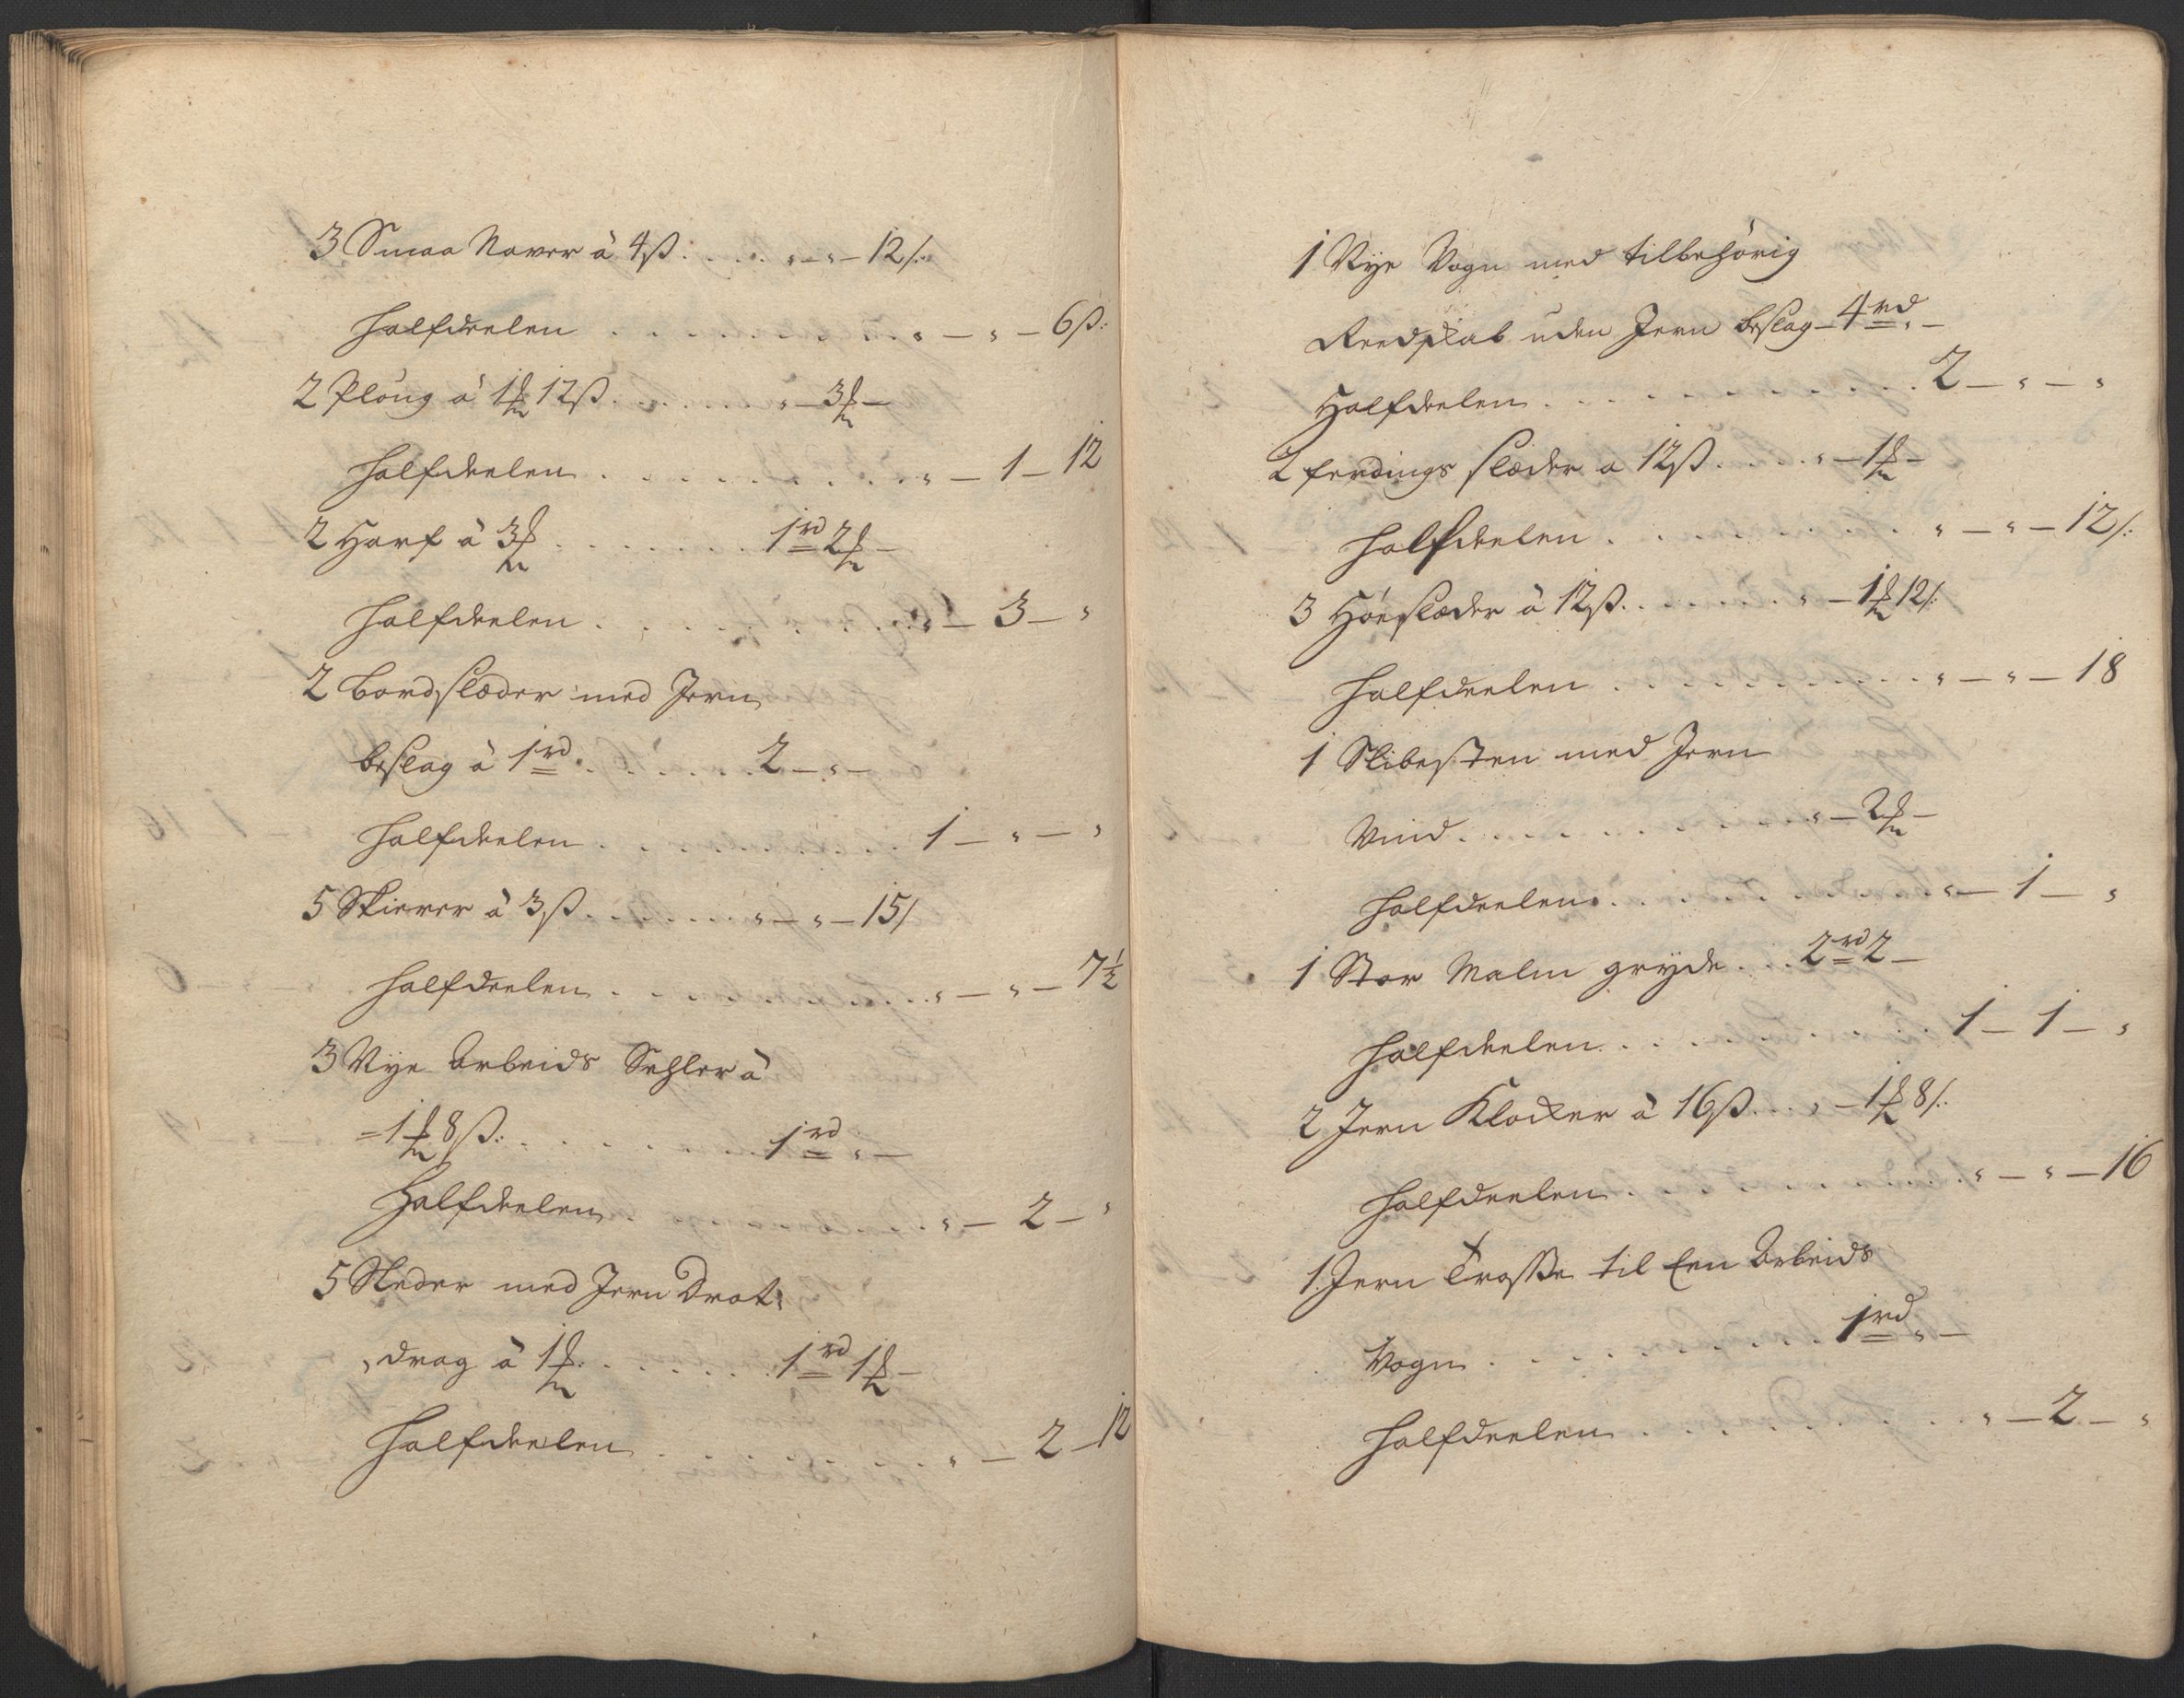 3 Smaa Naver à 4ß. . . . . „ — „ — 12ß.
Halfdeelen . . . . . . . . . . „ — „ — 6ß:
2 Ploug à 1 ℳ 12ß. . . . . . . „ — 3 ℳ —
Halfdeelen . . . . . . . . . . „ — 1 — 12
2 Harf à 3 ℳ . . . . . . . 1 rd 2 ℳ —
Halfdeelen . . . . . . . . . . „ — 3 — „
2 Bordslæder med Jern
beslag à 1 rd . . . . . 2 — „ —
Halfdeelen . . . . . . . . . . 1 — „ — „
5 Skierer à 3ß . . . . . . „ — „ — 15ß
Halfdeelen . . . . . . . . . . „ — „ — 7½
3 Nye Arbeids Sehler à
= 1 ℳ 8ß: . . . . . . . . 1 rd „ —
Halfdeelen . . . . . . . . . „ — 2 — „
5 Steder med Jern Drat
„drag à 1 ℳ: . . . . . . 1 rd 1 ℳ —
Halfdeelen . . . . . . . . . . „ — 2 — 12
1 Nye Vogn med tilbehörig
Reedskab uden Jern beslag — 4 rd „ —
Halfdeelen . . . . . . . . . . 2 — „ — „
2 ferdings slæder a 12ß . . . . „ — 1 ℳ —
Halfdeelen . . . . . . . . . . „ — „ — 12ß:
3 Höeslæder à 12ß. . . . . . „ — 1 ℳ 12ß:
Halfdeelen . . . . . . . . . . „ — „ — 18
1 Slibesten med Jern
Vind . . . . . . . . . . . . „ — 2 ℳ —
Halfdeelen . . . . . . . . . . „ — 1 — „
1 Stor Malm gryde . . . 2 rd 2 —
Halfdeelen . . . . . . . . . . 1 — 1 — „
2 Jern Klocker à 16ß . . . „ — 1 ℳ 8ß:
Halfdeelen . . . . . . . . . . „ — „ — 16
1 Jern Trosse til Een Arbeids
Vogn . . . . . . . . . . 1 rd „ —
Halfdeelen . . . . . . . . . . „ — 2 — „